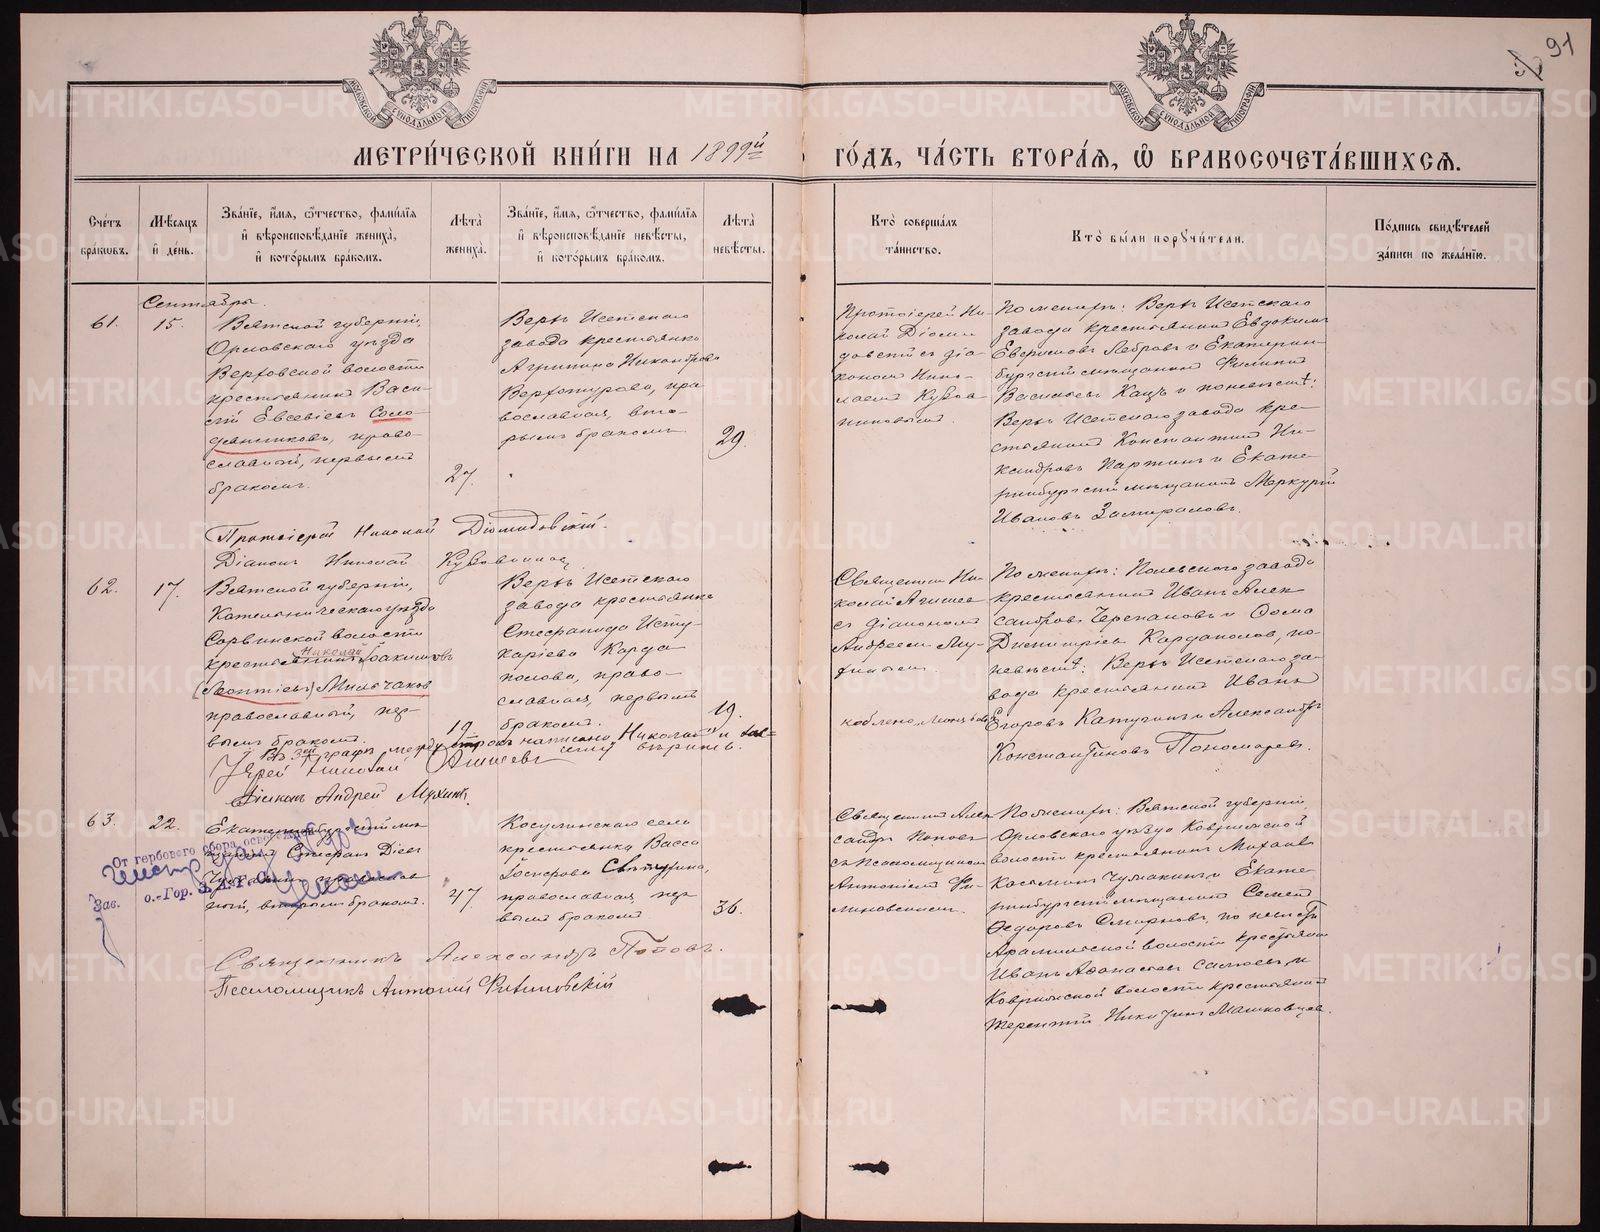 91
МЕТРИ́ЧЕСКОЙ КНИ́ГИ НА 1899й
ГО́ДЪ, ЧА́СТЬ ВТОРА́Я, Ѡ БРАКОСОЧЕТА́ВШИХСЯ.
Сче́тъ бра́кωвъ.
Мѣ́сяцъ и де́нь.
Зва́нїе, и́мя, ѻ҆́тчество, фами́лїя и вѣроисповѣ́данїе жениха̀, и кото́рымъ бра́комъ.
Лѣта̀ жениха̀.
Зва́нїе, и́мя, ѻ҆́тчество, фами́лїя и вѣроисповѣ́данїе невѣ́сты, и кото́рымъ бра́комъ.
Лѣта̀ невѣ́сты.
Кто̀ соверша́лъ та́инство.
Кто̀ бы́ли поручи́тели.
По́дпись свидѣ́телей за́писи по жела́нїю.
Сентябрь.
61.
15.
Вятской губерніи,
Орловскаго уѣзда
Верховской волости
крестьянинъ Васи-
лій Евсевіевъ Соло-
дянниковъ, право-
славный, первымъ
бракомъ.
27.
Верхъ Исетскаго
завода крестьянка
Агрипина Никандрова
Верхотурова, пра-
вославная, вто-
рымъ бракомъ.
29.
Протоіерей Ни-
колай Діоми-
довскій съ діа-
кономъ Нико-
лаемъ
По женихѣ: Верхъ Исетскаго
завода крестьянинъ Евдокимъ
Лебровъ и Екатерин-
бургскій мѣщанинъ Филиппъ
Васильевъ Кацъ и по невѣстѣ:
Верхъ Исетскаго завода кре-
стьянинъ Константинъ Ни-
кандровъ Партинъ и Екате-
ринбургскій мѣщанинъ Меркурій
Ивановъ
Протоіерей Николай Діомидовскій.
Діаконъ Николай
62.
17.
Вятской губерніи,
Котельническаго уѣзда
Сорвинской волости
Николай
крестьянинъ Іоакимовъ
(Леонтіевъ) Мильчаковъ
православный, пер-
вымъ бракомъ.
19.
Верхъ Исетскаго
завода крестьянка
Стефанида Исту-
каріева Карда-
полова, право-
славная, первымъ
бракомъ.
19.
Священникъ Ни-
колай Агинеевъ
съ діакономъ
Андреемъ Му-
хинымъ.
По женихѣ: Полевскаго завода
крестьянинъ Иванъ Алек-
сандровъ Черепановъ и Ѳома
Димитріевъ Кардаполовъ, по
невѣстѣ: Верхъ Исетскаго за-
вода крестьянинъ Иванъ
Егоровъ Катугинъ и Александръ
Константиновъ Пономаревъ.
Въ 3ей графѣ между строкъ написано „Николай“ и
сему вѣрить.
Іерей Николай Агинеевъ
Діаконъ Андрей Мухинъ.
63.
22.
Екатеринбургскій мѣ-
щанинъ Стефанъ Діевъ
православ-
ный, вторымъ бракомъ.
47
Косулинскаго села
крестьянка Васса
православная, пер-
вымъ бракомъ
36.
Священникъ Алек-
сандръ Поповъ
съ псаломщикомъ
Антоніемъ Фи-
линовскимъ.
По женихѣ: Вятской губерніи
Орловскаго уѣзда Коврижской
волости крестьянинъ Михаилъ
Козьминъ Чумакинъ и Екате-
ринбургскій мѣщанинъ Семенъ
Ѳедоровъ Смирновъ, по невѣстѣ
Арамильской волости крестьянинъ
Иванъ Аѳанасьевъ и
Коврижской волости крестьянинъ
Терентій Никитинъ Машковцевъ.
Священникъ Александръ Поповъ.
Псаломщикъ Антоній Филиновскій
От гербового сбора осв
Зав. о.-Гор.
METRIKI.GASO-URAL.RU